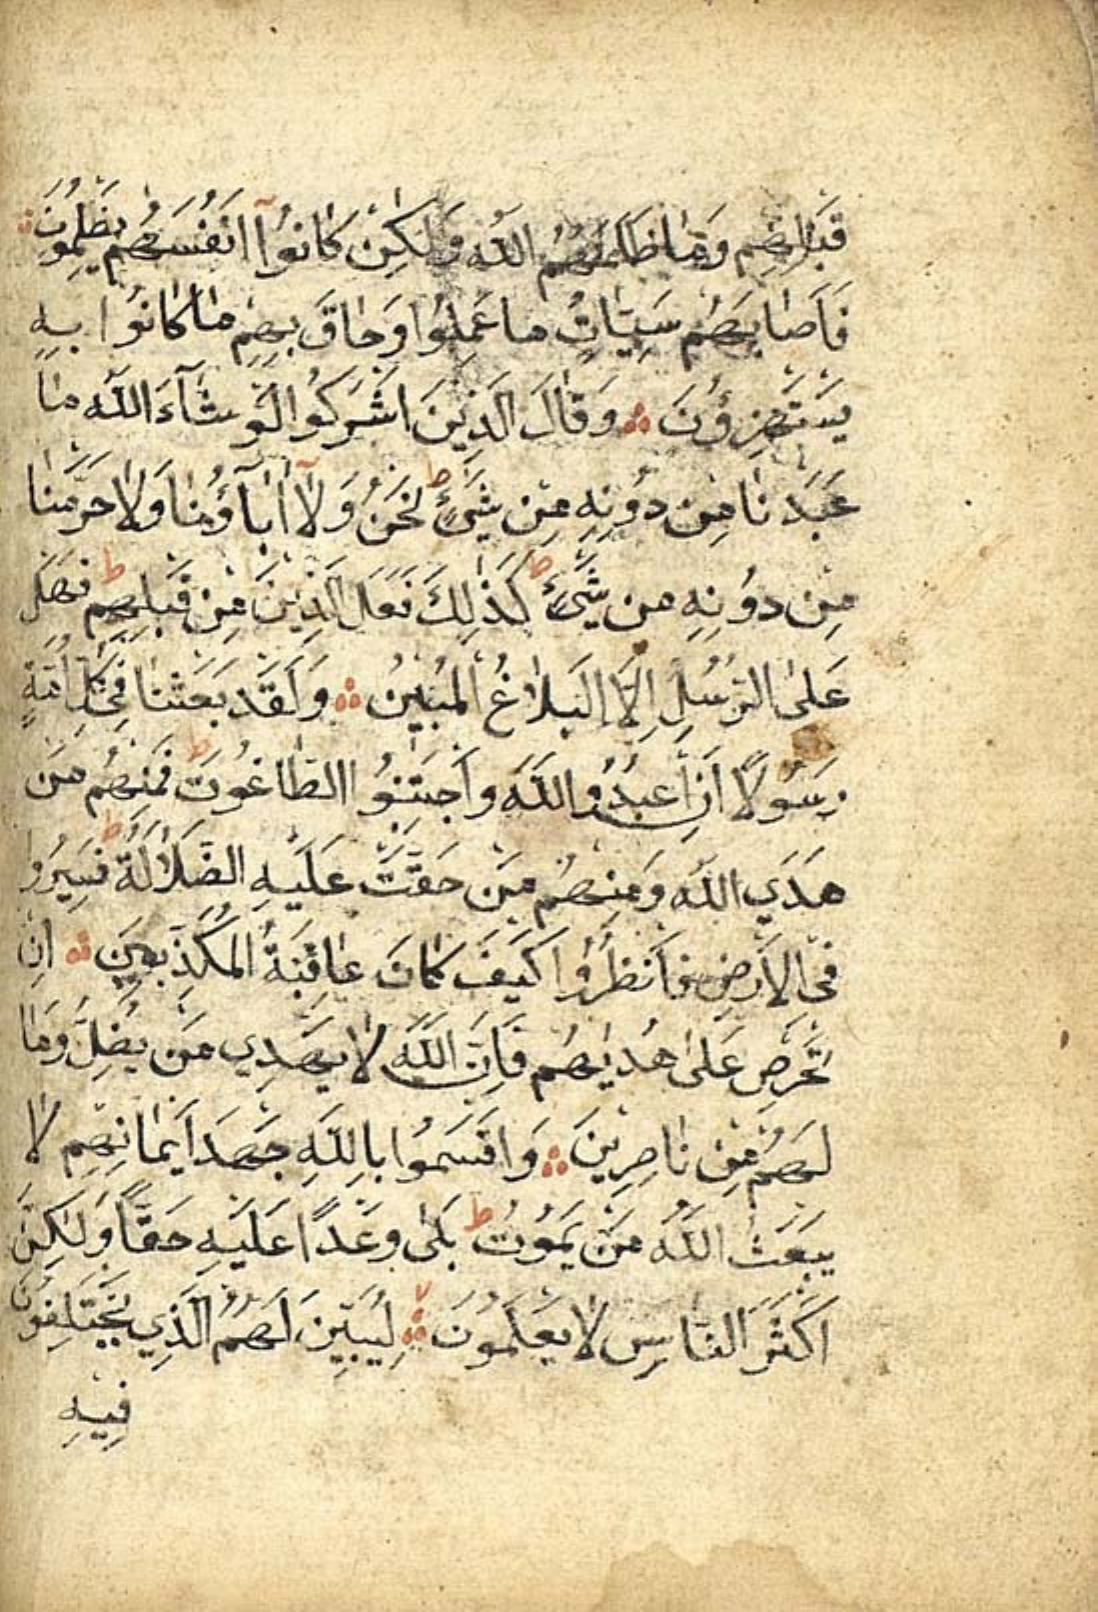 قَبْلِهِمْ وَمَا ظَلَمَهُمُ اللّٰهُ وَلٰكِنْ كَانُوٓا اَنْفُسَهُمْ يَظْلِمُونَ
فَاَصَابَهُمْ سَيِّئَاتُ مَا عَمِلُوا وَحَاقَ بِهِمْ مَا كَانُوا بِهِ
يَسْتَهْزِؤُنَ ۞ وَقَالَ الَّذِينَ اَشْرَكُوا لَوْ شَآءَ اللّٰهُ مَا
عَبَدْنَا مِنْ دُونِهِ مِنْ شَيْءٍ ط نَحْنُ وَلَآ اٰبَآؤُنَا وَلَا حَرَّمْنَا
مِنْ دُونِهِ مِنْ شَيْءٍ ط كَذٰلِكَ فَعَلَ الَّذِينَ مِنْ قَبْلِهِمْ ط فَهَلْ
عَلَى الرُّسُلِ اِلَّا الْبَلَاغُ الْمُبِينُ ۞ وَلَقَدْ بَعَثْنَا فِي كُلِّ اُمَّةٍ
رَسُولًا اَنِ اعْبُدُوا اللّٰهَ وَاجْتَنِبُوا الطَّاغُوتَ ط فَمِنْهُمْ مَنْ
هَدَي اللّٰهُ وَمِنْهُمْ مَنْ حَقَّتْ عَلَيْهِ الضَّلَالَةُ ط فَسِيرُوا
فِي الْاَرْضِ فَانْظُرُوا كَيْفَ كَانَ عَاقِبَةُ الْمُكَذِّبِينَ ۞ اِنْ
تَحْرِصْ عَلٰى هُدٰيهُمْ فَاِنَّ اللّٰهَ لَا يَهْدِي مَنْ يُضِلُّ وَمَا
لَهُمْ مِنْ نَاصِرِينَ ۞ وَاَقْسَمُوا بِاللّٰهِ جَهْدَ اَيْمَانِهِمْ لَا
يَبْعَثُ اللّٰهُ مَنْ يَمُوتُ ط بَلٰى وَعْدًا عَلَيْهِ حَقًّا وَلٰكِنَّ
اَكْثَرَ النَّاسِ لَا يَعْلَمُونَ ۞ لِيُبَيِّنَ لَهُمُ الَّذِي يَخْتَلِفُونَ
فِيهِ